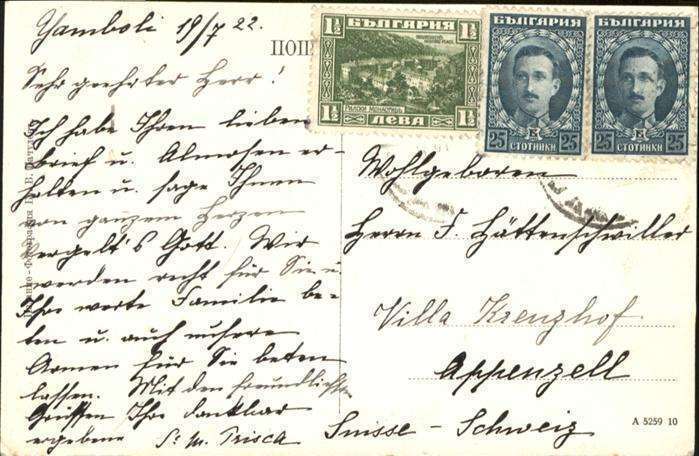 Yamboli 19/7 22.
Sehr geehrter Herr!
Ich habe Ihren lieben
Brief u. Almosen er-
halten u. sage Ihnen
von ganzem Herzen
vergelt's Gott. Wir
werden recht für Sie u.
Ihre werte Familie be-
ten u. auch unsere
Armen für Sie beten
lassen. Mit den freundlichsten
Grüssen Ihre dankbar
ergebene Sr. M. Prisca
ПОЩ
БЪЛГАРИЯ
1½ 1½
РИЛСКИ МОНАСТИРЬ
1½ ЛЕВА 1½
БЪЛГАРИЯ
25 25
СТОТИНКИ
БЪЛГАРИЯ
25 25
СТОТИНКИ
Wohlgeboren
Herrn F. Hättenschwiller
Villa Kreuzhof
Appenzell
Suisse - Schweiz
A 5259 10